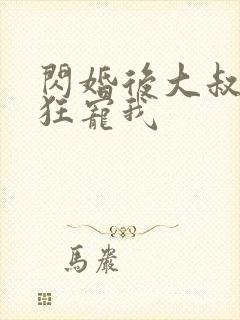 閃婚後大叔
狂寵我
馬嚴